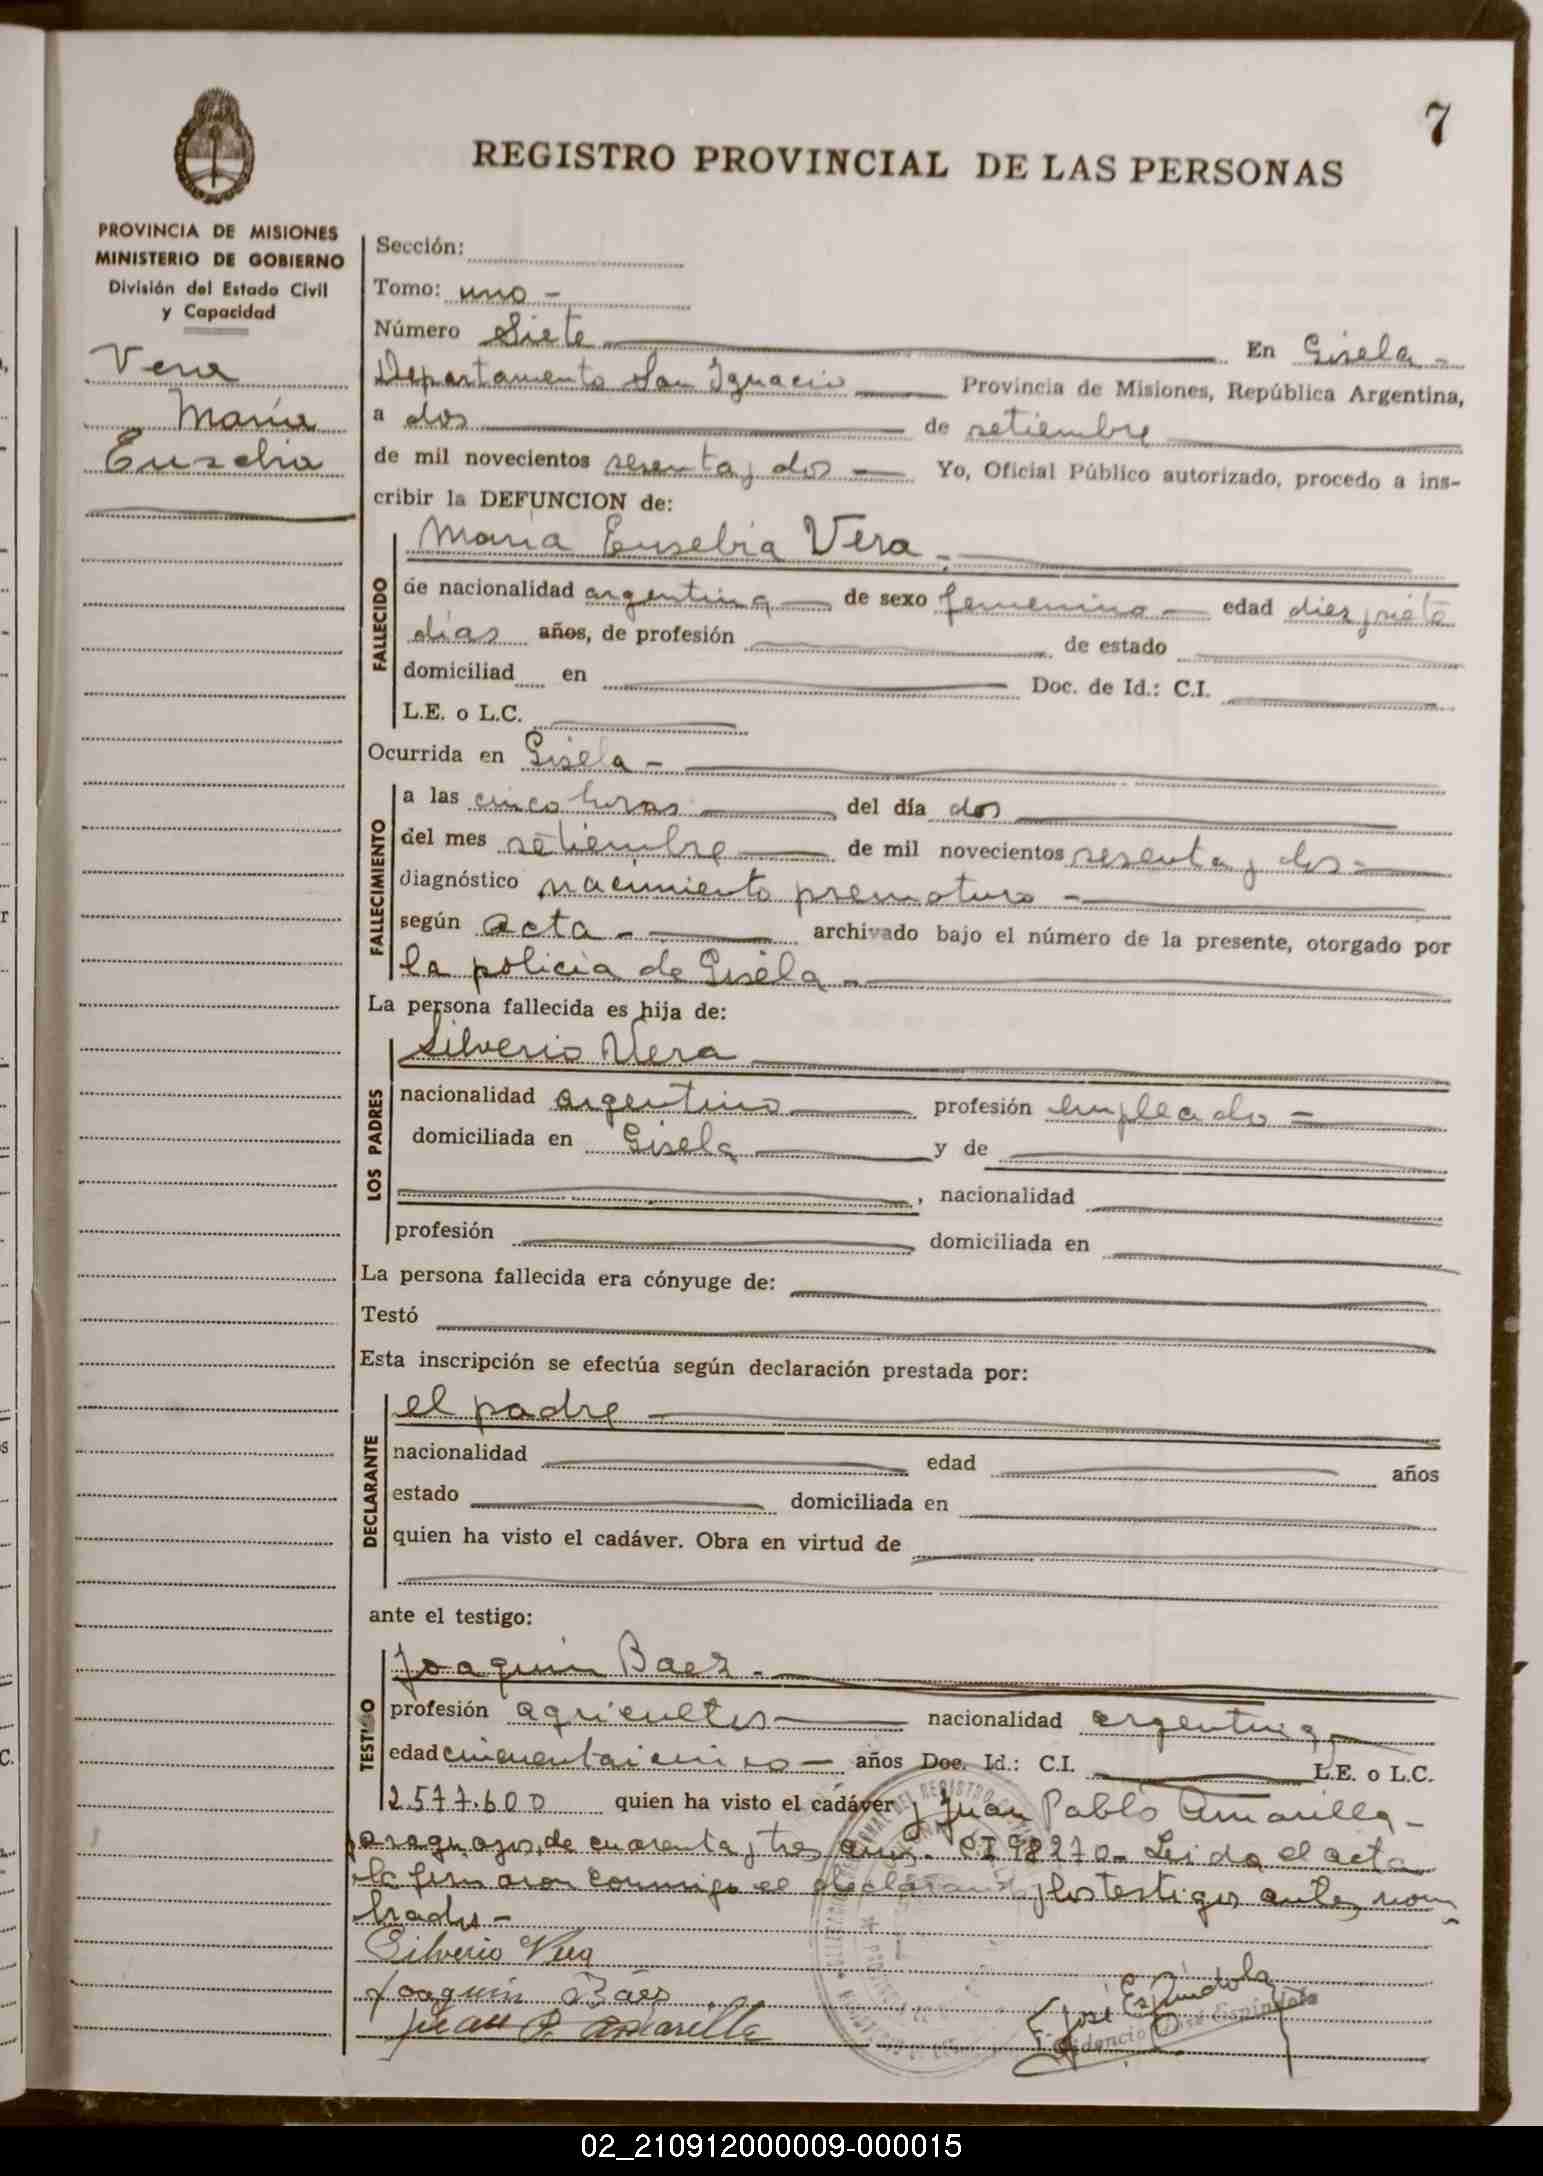 7
REGISTRO PROVINCIAL DE LAS PERSONAS
PROVINCIA DE MISIONES
MINISTERIO DE GOBIERNO
División del Estado Civil
y Capacidad
Vera
María
Eusebia
Sección:
Tomo: uno -
Número Siete En Gisela -
Departamento San Ignacio Provincia de Misiones, República Argentina,
a dos de setiembre
de mil novecientos sesenta y dos Yo, Oficial Público autorizado, procedo a ins-
cribir la DEFUNCION de:
FALLECIDO
María Eusebia Vera -
de nacionalidad argentina de sexo femenino edad diez y siete
días años, de profesión de estado
domiciliad en Doc. de Id.: C.I.
L.E. o L.C.
Ocurrida en Gisela -
FALLECIMIENTO
a las cinco horas del día dos
del mes setiembre de mil novecientos sesenta y dos -
diagnóstico nacimiento prematuro -
según acta - archivado bajo el número de la presente, otorgado por
la policía de Gisela -
La persona fallecida es hija de:
LOS PADRES
Silverio Vera
nacionalidad argentino profesión empleado
domiciliada en Gisela y de
, nacionalidad
profesión domiciliada en
La persona fallecida era cónyuge de:
Testó
Esta inscripción se efectúa según declaración prestada por:
DECLARANTE
el padre
nacionalidad edad años
estado domiciliada en
quien ha visto el cadáver. Obra en virtud de
ante el testigo:
TESTIGO
Joaquín Baez -
profesión agricultor nacionalidad argentina
edad cincuentaicinco - años Doc. Id.: C.I. L.E. o L.C.
2.577.600 quien ha visto el cadáver y Juan Pablo Amarilla -
paraguayo, de cuarenta y tres años - CI 98270 - Leida el acta
la firmaron conmigo el declarante y los testigos antes nom
brados -
Silverio Vera
Joaquín Báes
Juan P. Amarilla
José Espíndola
02_210912000009-000015